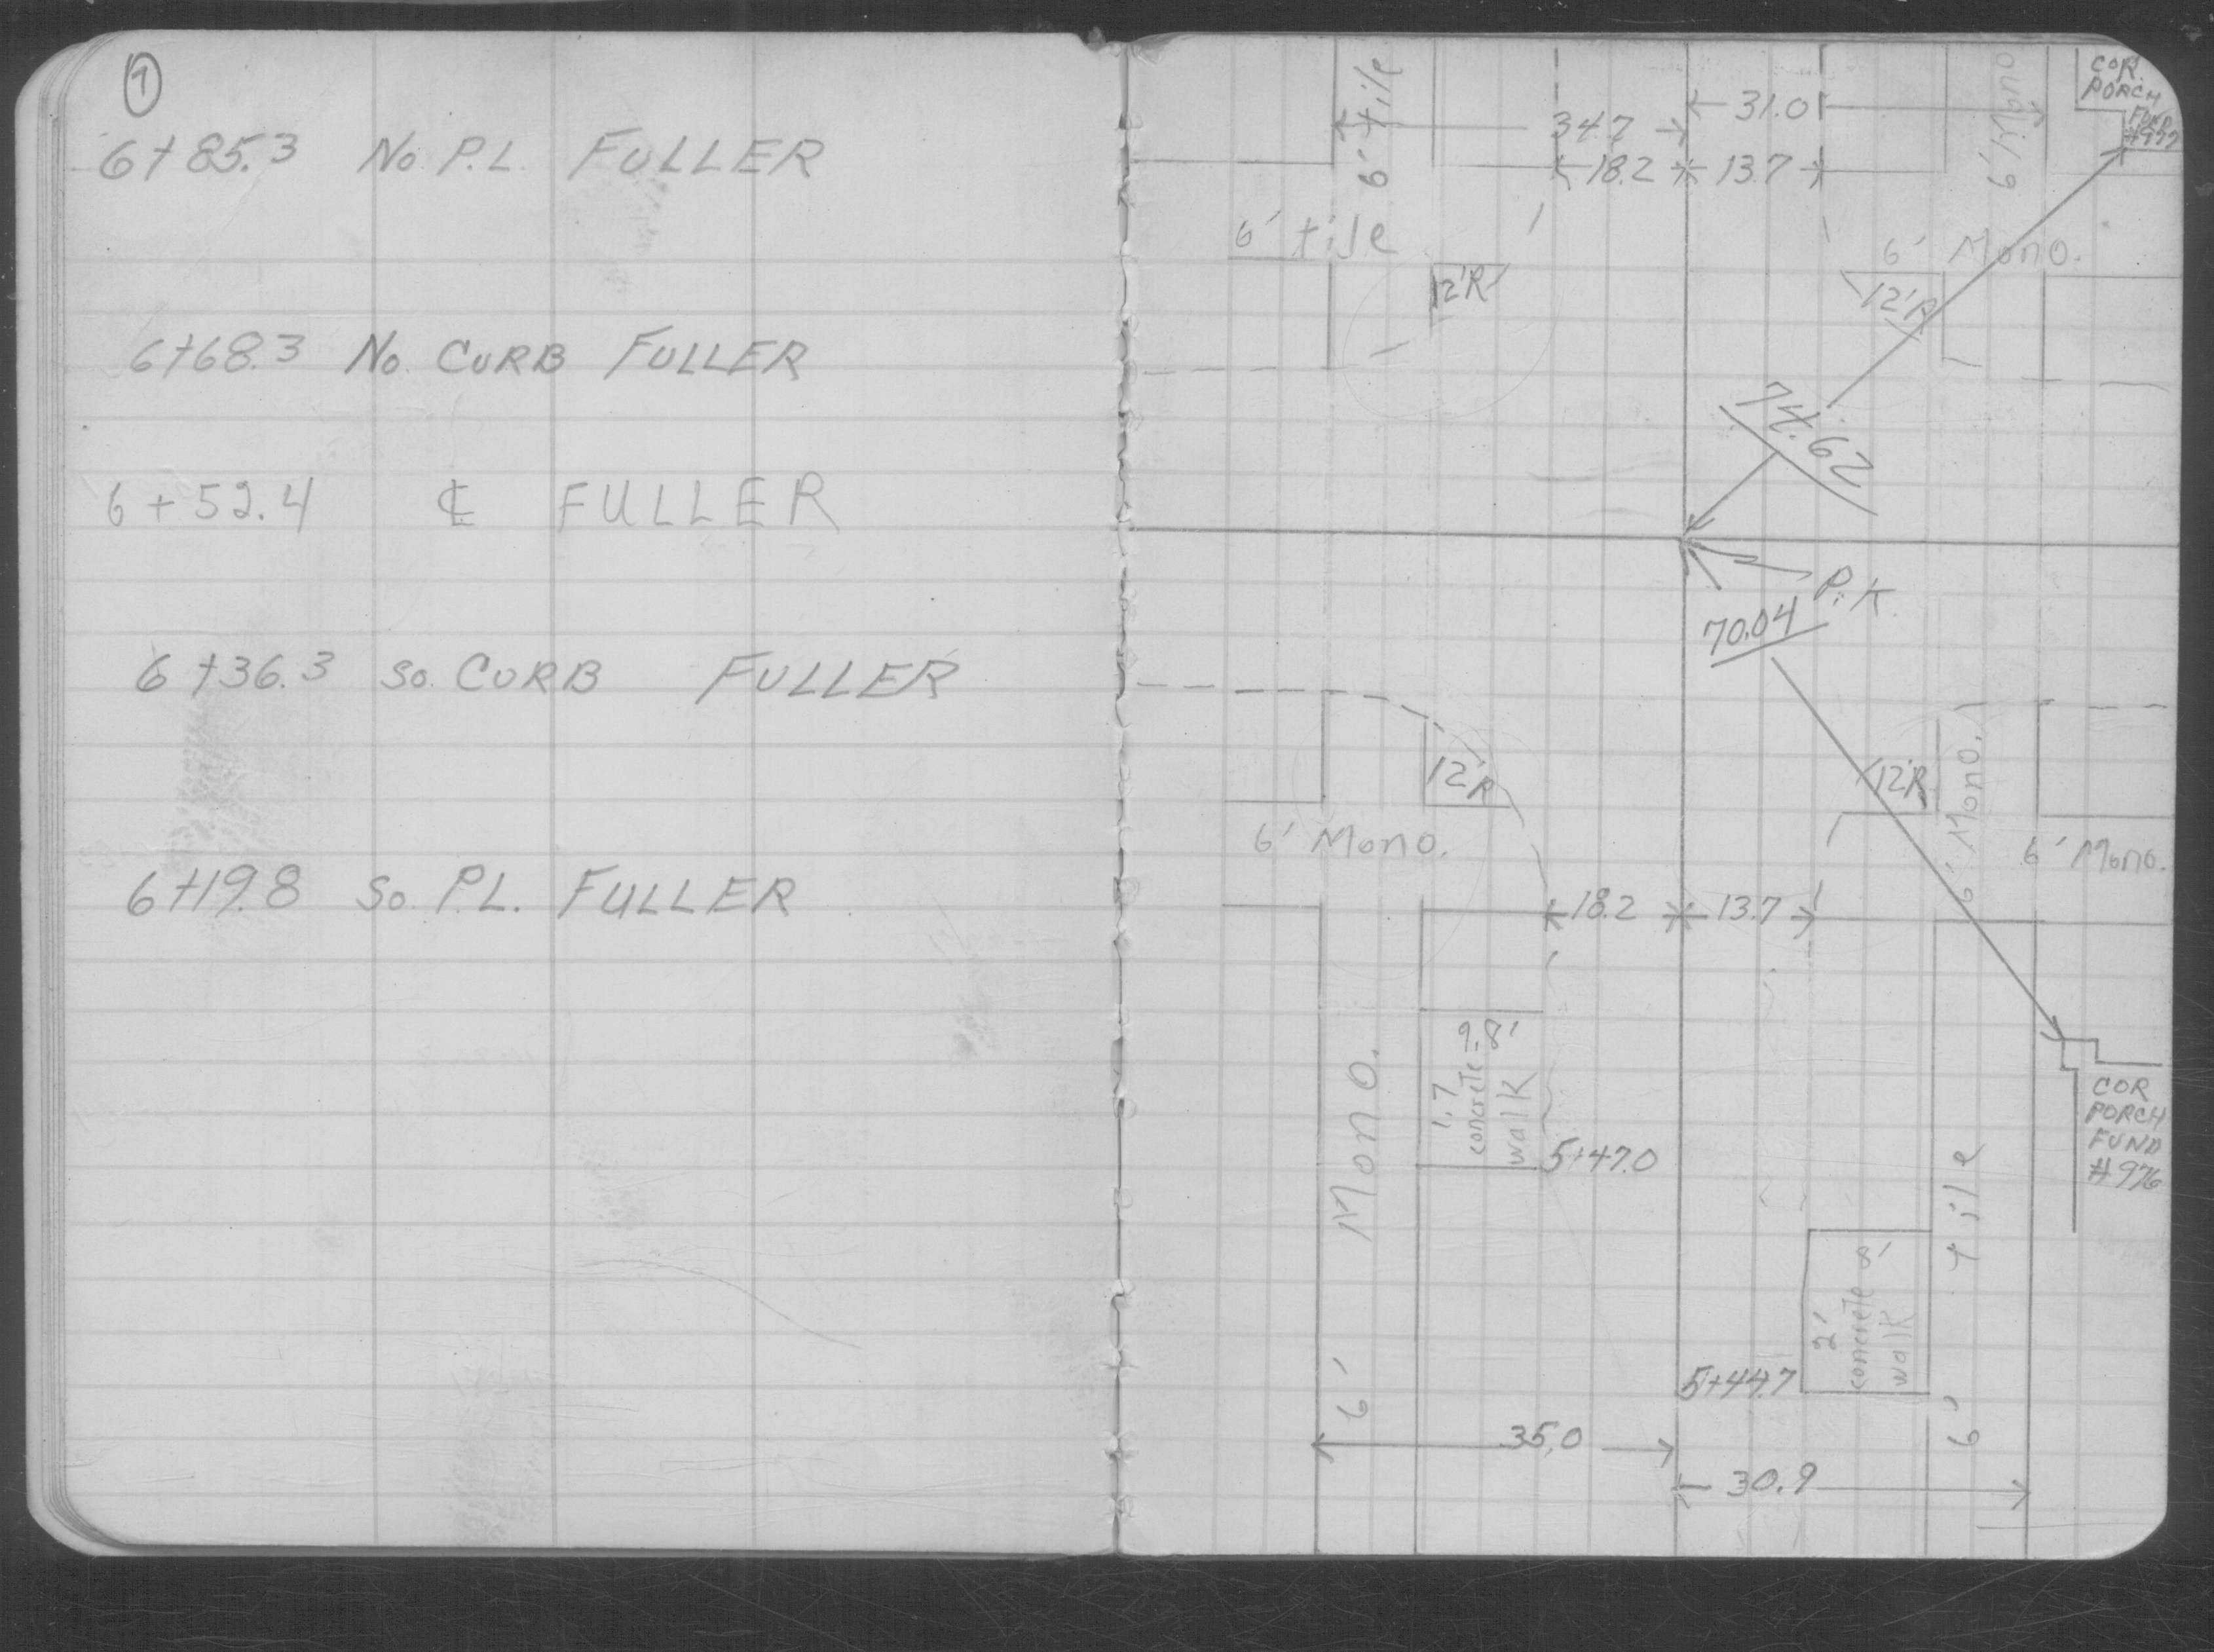 7
6+85.3 No. P.L. FULLER
6+68.3 No. CURB FULLER
6+52.4 ℄ FULLER
6+36.3 So. CURB FULLER
6+19.8 So. P.L. FULLER
6' tile
34.7
31.0
6' Mono
COR.
PORCH
FUND
#977
18.2
13.7
6' tile
6' Mono.
12'R
12'R
74.62
P.K.
70.04
12'R
12'R
6' Mono.
6' Mono.
6' Mono.
18.2
13.7
1.7
concrete 9.8'
walk
5+47.0
6' Mono.
COR
PORCH
FUND
#976
2'
concrete 8'
walk
5+44.7
6' tile
35.0
30.9